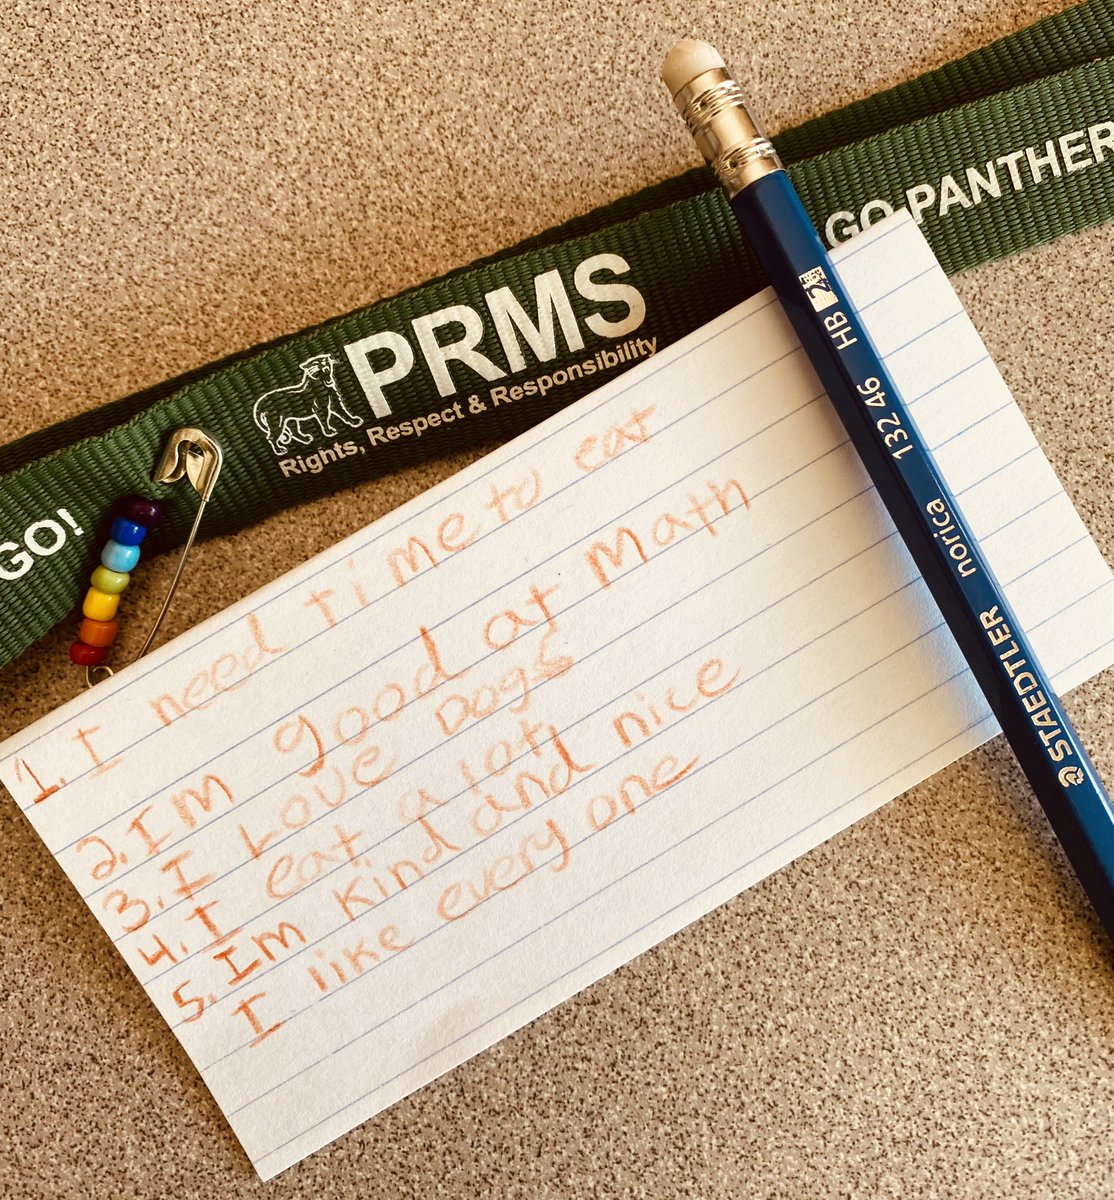 GO!
PRMS
Rights, Respect & Responsibility
GO PANTHER
1. I need time to eat
2. Im good at Math
3. I Love Dogs
4. I eat a lot
5. Im Kind and nice
I like every one
STAEDTLER norica 132 46 HB 2